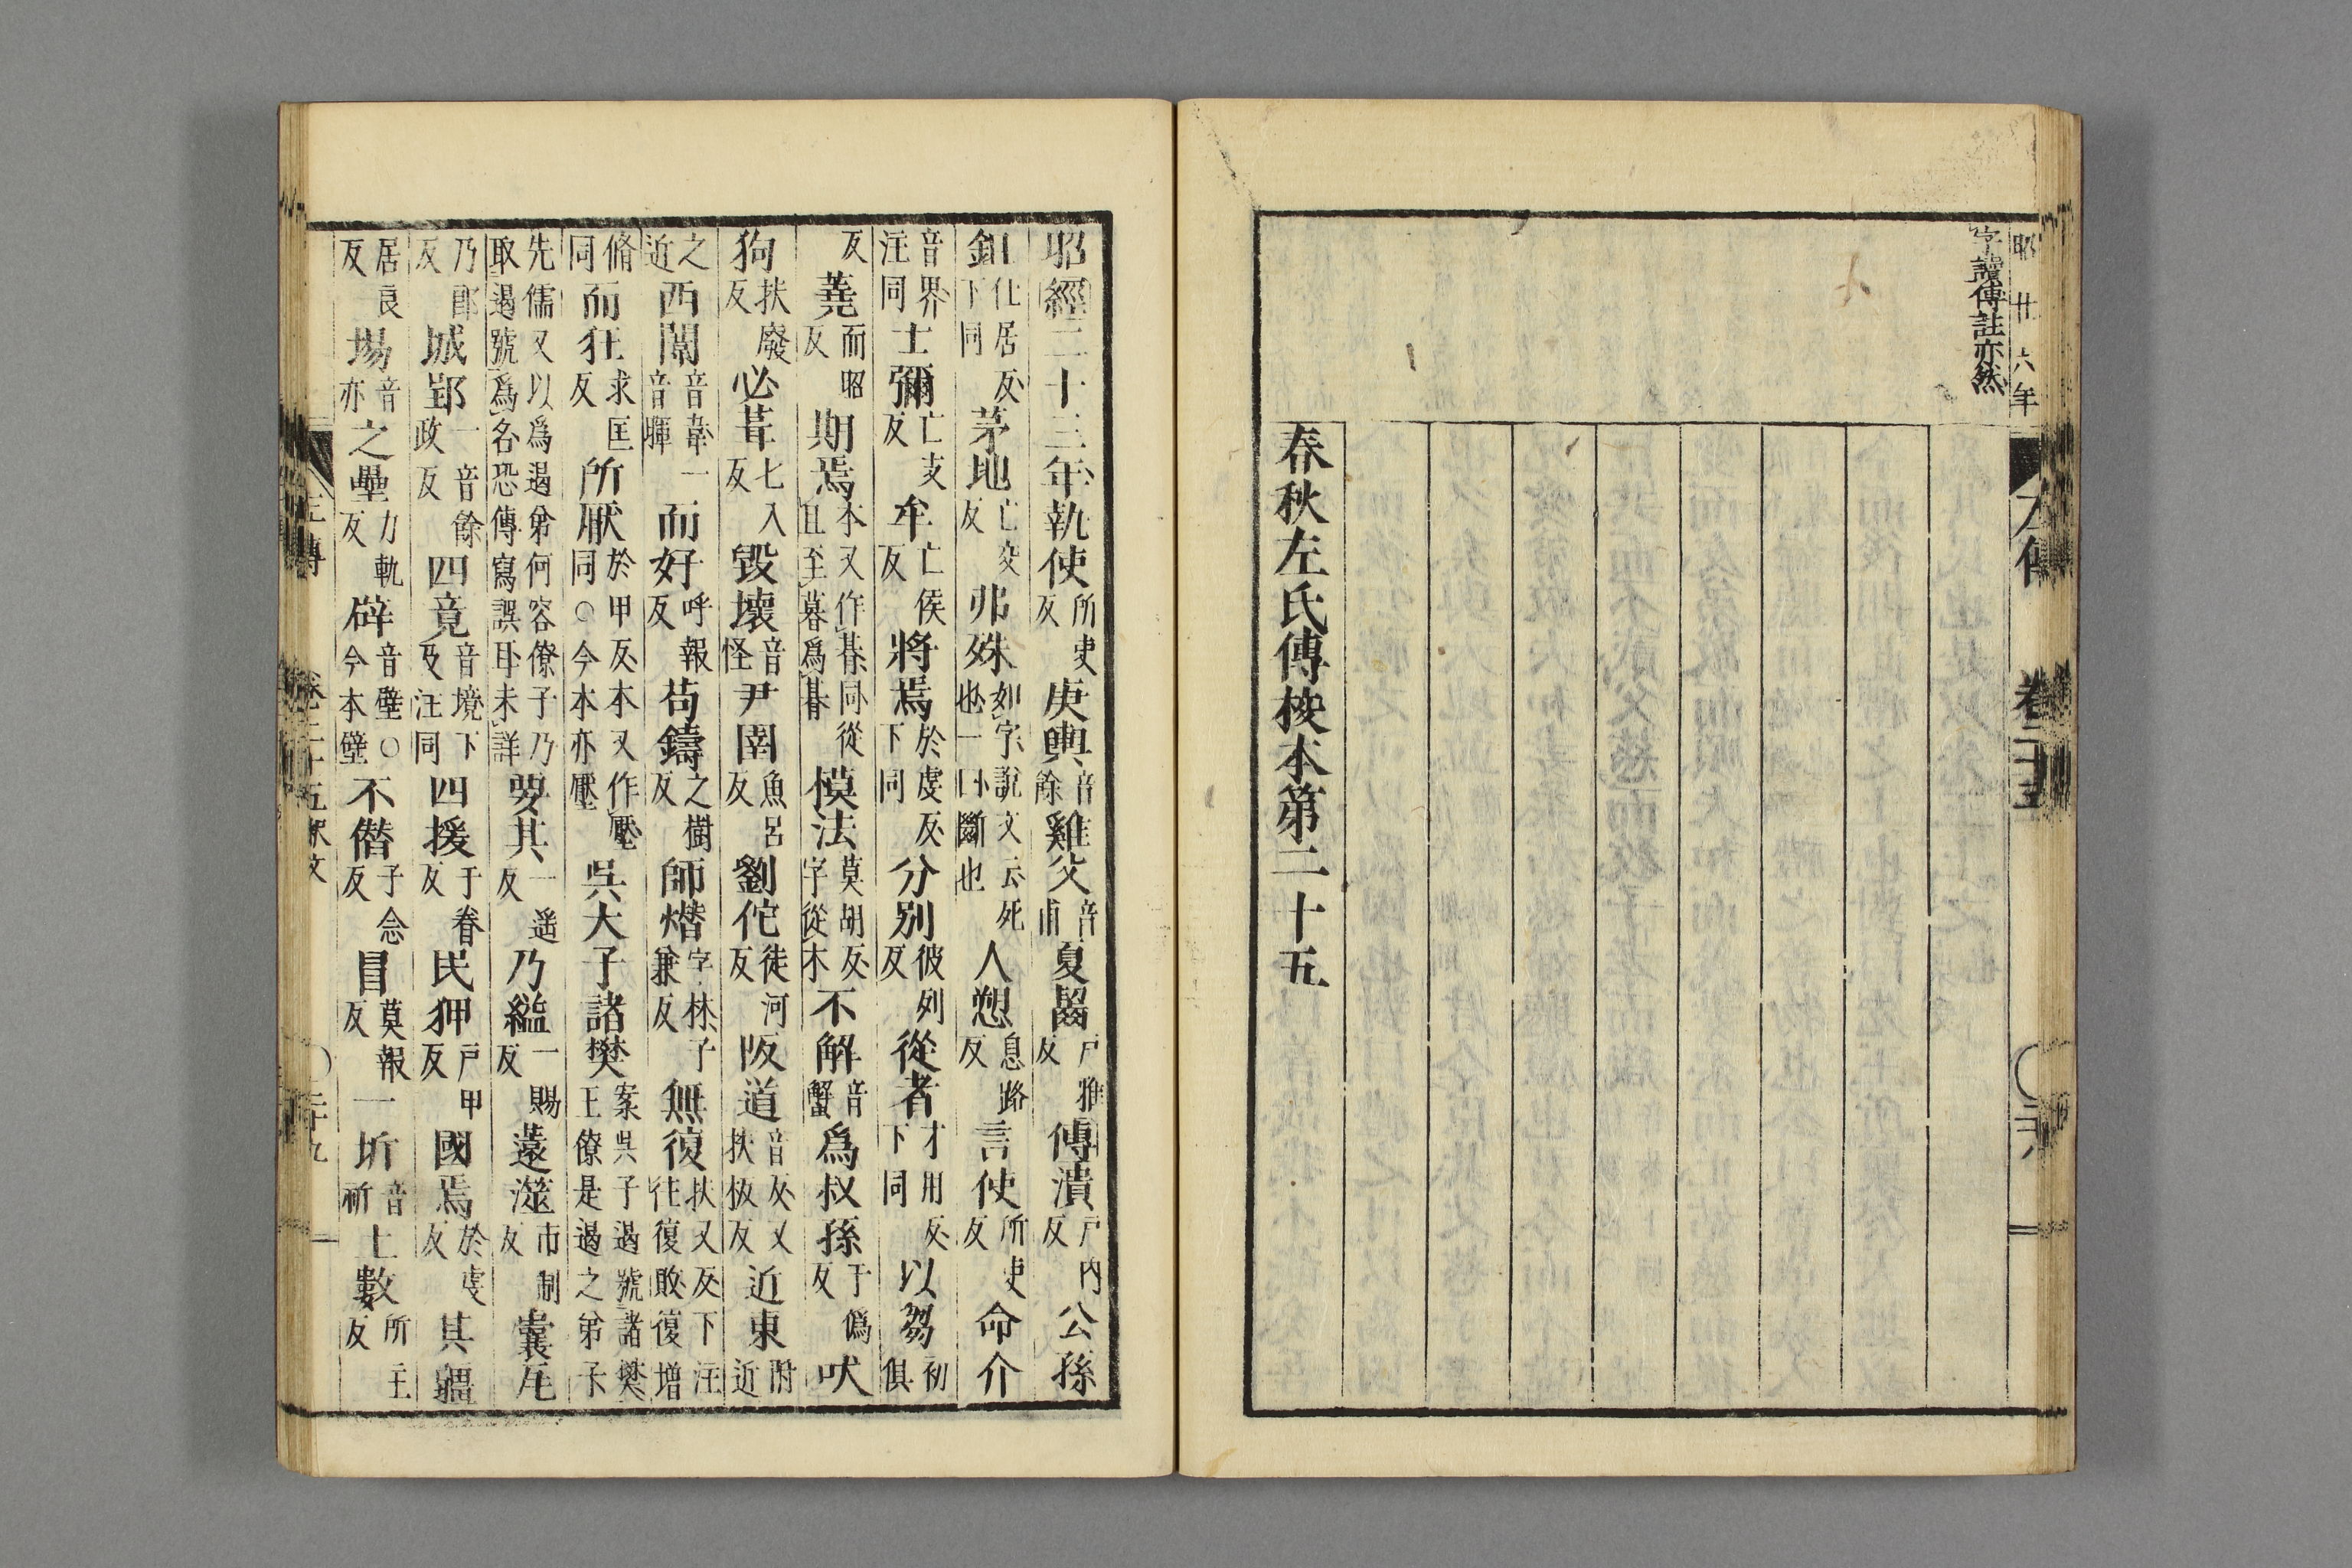 昭廿六年
左傳 卷二十五
字讀傳註亦然
春秋左氏傳校本第二十五
昭經二十三年執使所吏反庚輿音餘雞父音甫夏齧戶雅反傳潰戶內反公孫
鉏仕居反下同茅地亡交反弗殊如字說文云死也一曰斷也人愬息路反言使所吏反命介
音界注同士彌亡支反牟亡侯反將焉於虔反下同分別彼列反從者才用反下同以芻初俱
反蕘而昭反期焉本又作朞同從旦至暮爲朞模法莫胡反字從木不解音蟹爲叔孫于僞反吠
狗扶廢反必葺七入反毀壞音怪尹圉魚呂反劉佗徒河反阪道音反又扶板反近東附近
之近西闈音韋一音暉而好呼報反苟鑄之樹反師熸字林子兼反無復扶又反下注往復敢復增
脩同而狂求匡反所厭於甲反本又作壓同○今本亦壓吳大子諸樊案吳子遏號諸樊王僚是遏之弟子
先儒又以爲遏弟何容僚子乃取遏號爲名恐傳寫誤耳未詳要其一遙反乃縊一賜反薳澨市制反囊瓦
乃郎反城郢一音餘政反四竟音境下及注同四援于眷反民狎戶甲反國焉於虔反其疆
居良反場音亦之壘力軌反辟音壁○今本壁不僭子念反耄莫報反一圻音祈土數所主反